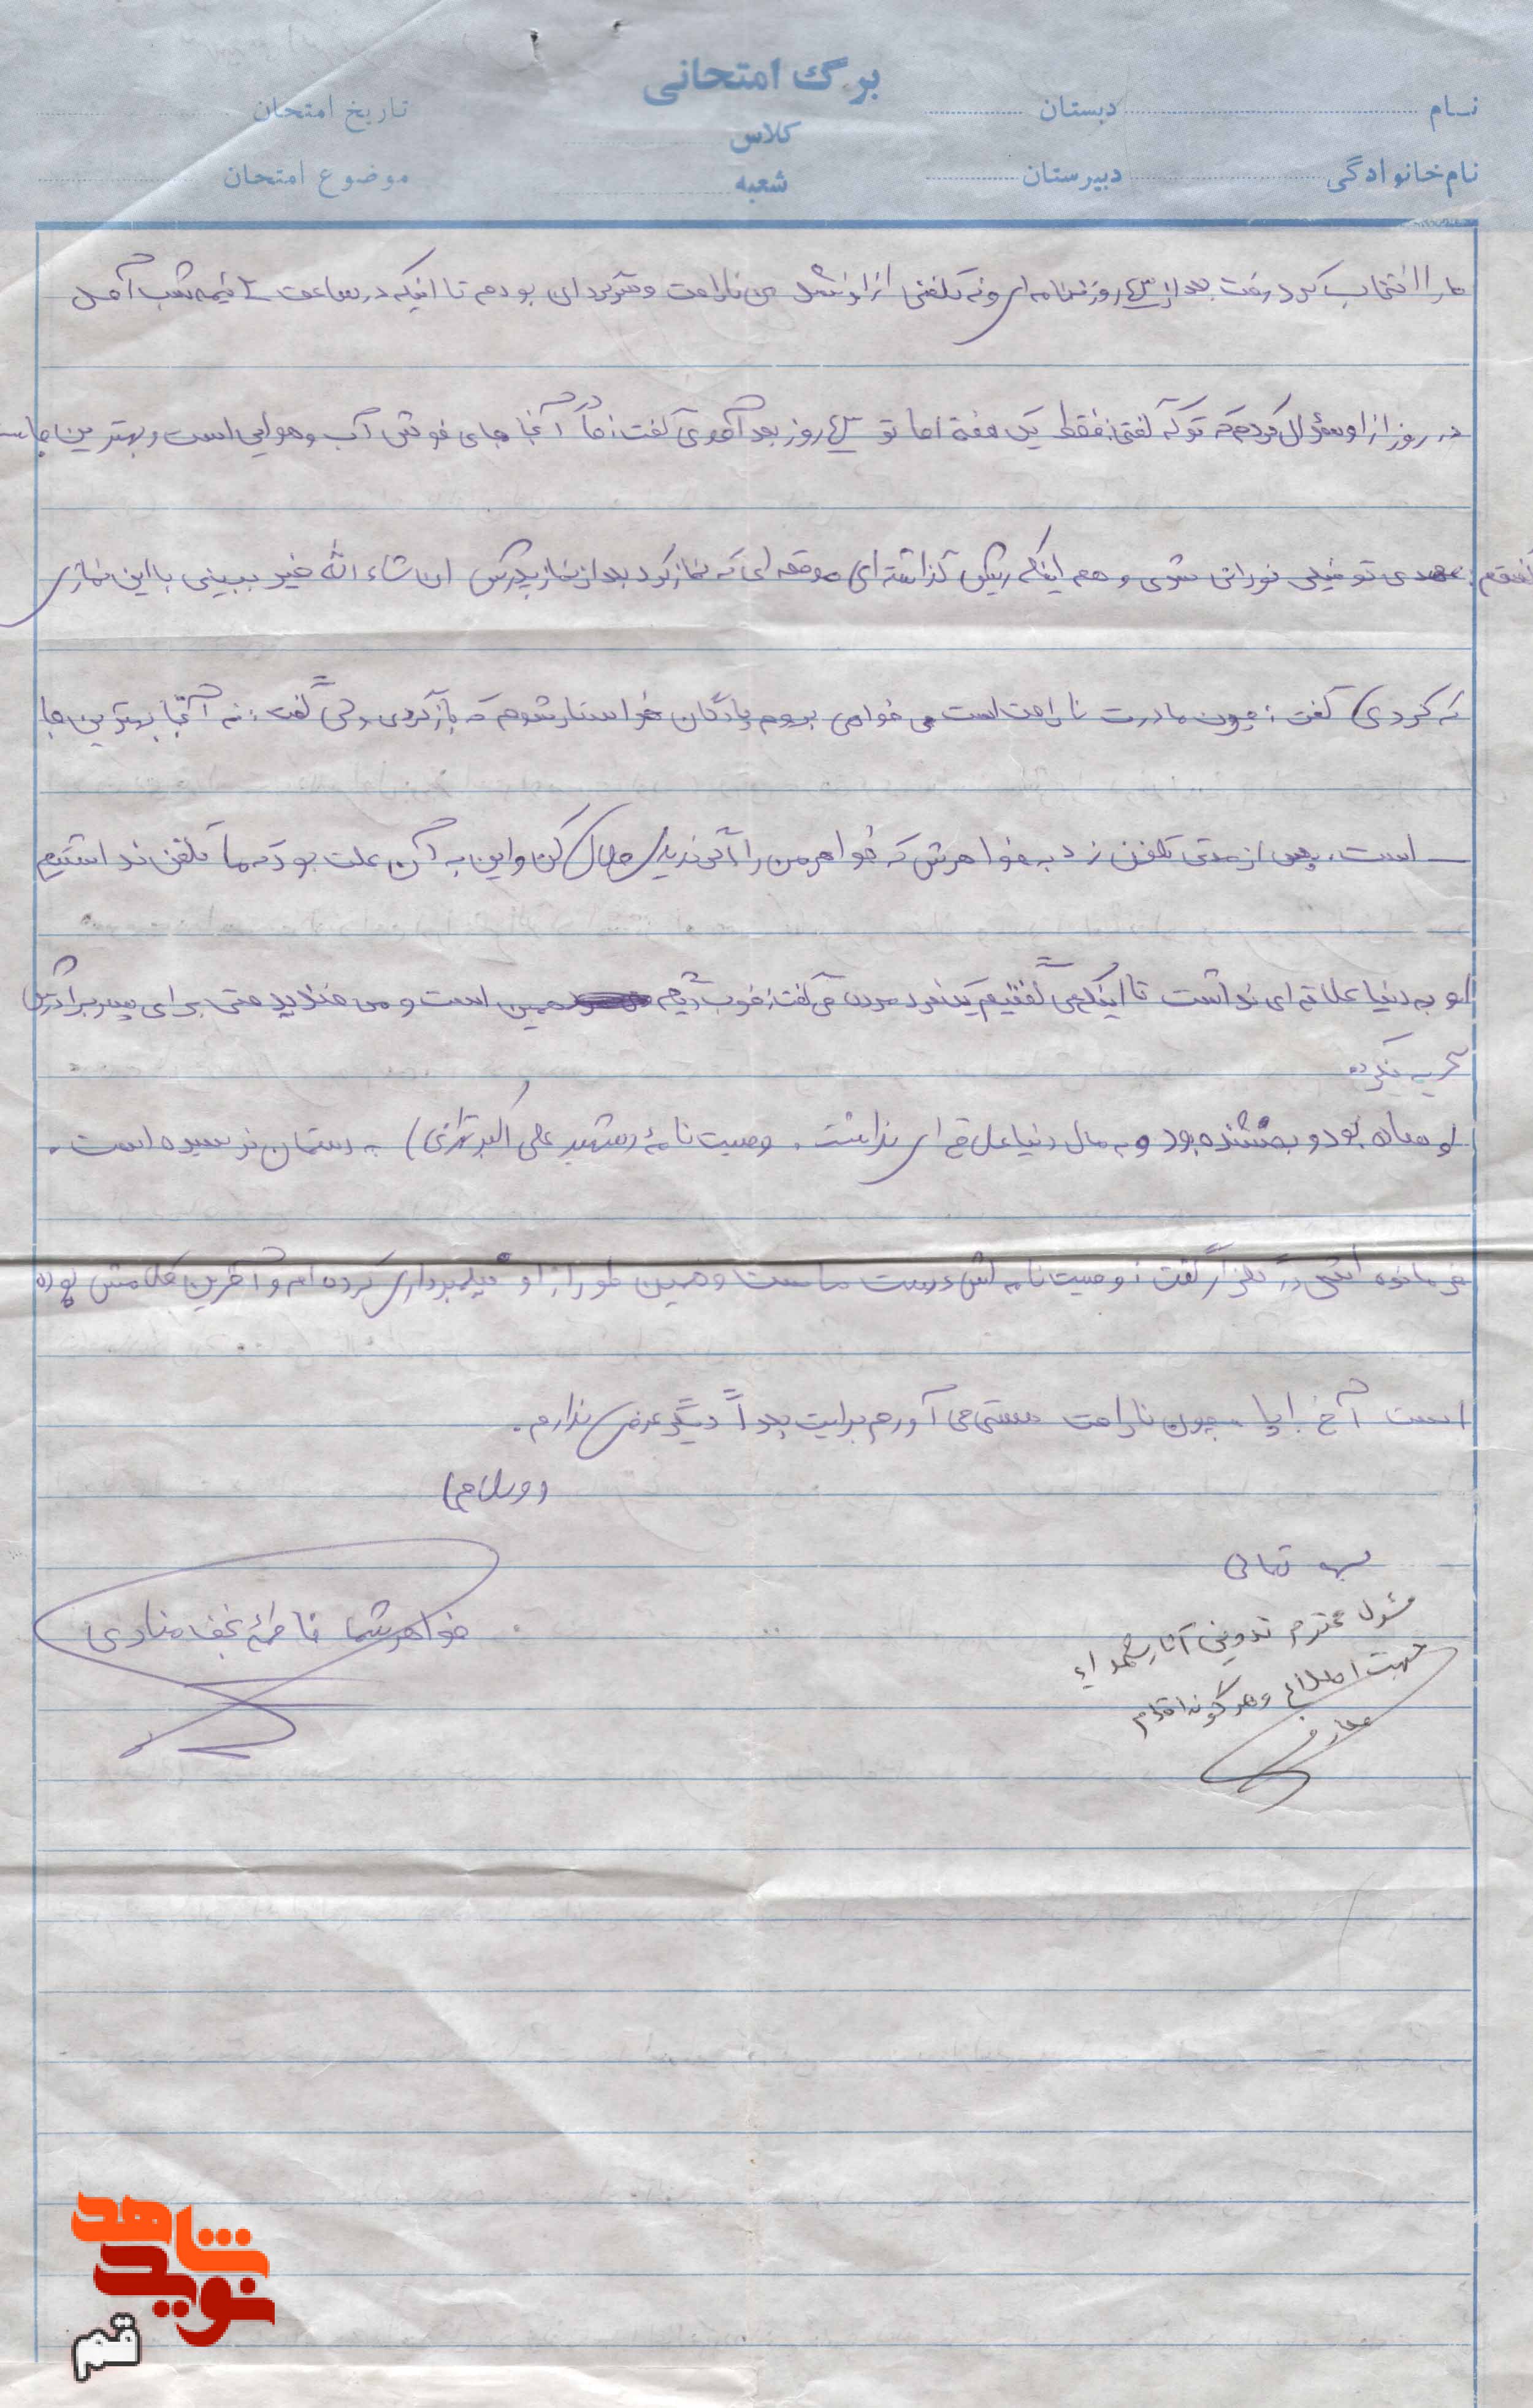 برگ امتحانی
نام دبستان تاریخ امتحان
کلاس
نام خانوادگی دبیرستان موضوع امتحان
شعبه
ما را انتخاب کرد رفت بعد از روز نه نامه ای و نه تلفنی از او نشد من ناراحت و بودم تا اینکه در ساعت ۲ نیمه شب آمد
در روز از او سؤال کردم که تو که گفتی: فقط یک هفته اما تو روز بعد آمدی گفت: مادر آنجا جای خوش آب و هوایی است و بهترین جاست
گفتم: مهدی تو خیلی نورانی شدی و هم اینکه ریش گذاشته ای موقعه ای که نماز کرد بعد از نماز پدرش ان شاء الله خیر ببینی با این نمازی
که کردی) گفت: چون مادرت ناراحت است می خواهی بروم پادگان خواستار شوم که بازگردی ولی گفت: نه آنجا بهترین جا
است، بعد از مدتی تلفن زد به خواهرش که خواهر من را اگر ندیدی حلال کن و این به آن علت بود که ما تلفن نداشتیم
او به دنیا علاقه ای نداشت تا اینکه می گفتیم می گفت: خوب همین است و می خندید حتی برای پسر برادرش
گریه نکرده
او ساده بود و بخشنده بود و به مال دنیا علاقه ای نداشت. وصیت نامهٔ (شهید علی اکبر) به دستمان نرسیده است.
فرمانده گفت: وصیت نامه اش دست ماست و همین طور از او فیلمبرداری کرده ام و آخرین کلامش بوده
است آخ بابا. چون ناراحت می آورم برایت بعداً دیگر عرضی ندارم.
(وسلام)
خواهر شما فاطمهٔ نجف منادی
بسمه تعالی
مسئول محترم تدوین آثار شهداء
جهت اطلاع و هر گونه اقدام
شاهد
نوید
قم